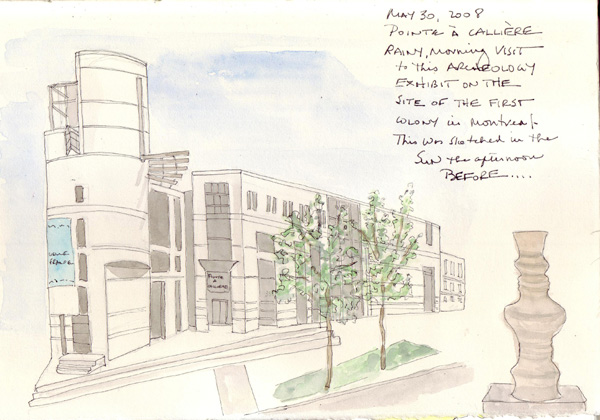 MAY 30, 2008
POINTE À CALLIÈRE
RAINY, MORNING VISIT
to this ARCHEOLOGY
EXHIBIT ON THE
SITE OF THE FIRST
COLONY in Montreal.
This was sketched in the
Sun the afternoon
BEFORE....
POINTE
À